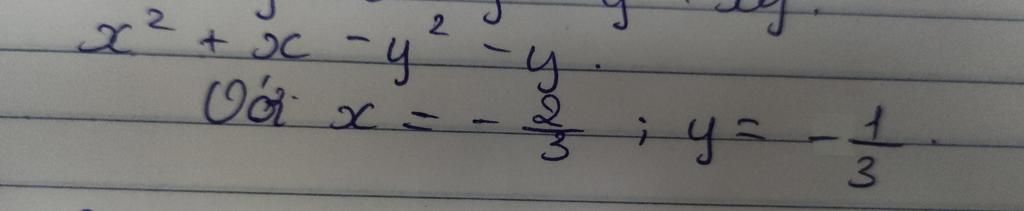 x² + x - y² - y.
Với x = - 2/3 ; y = - 1/3.